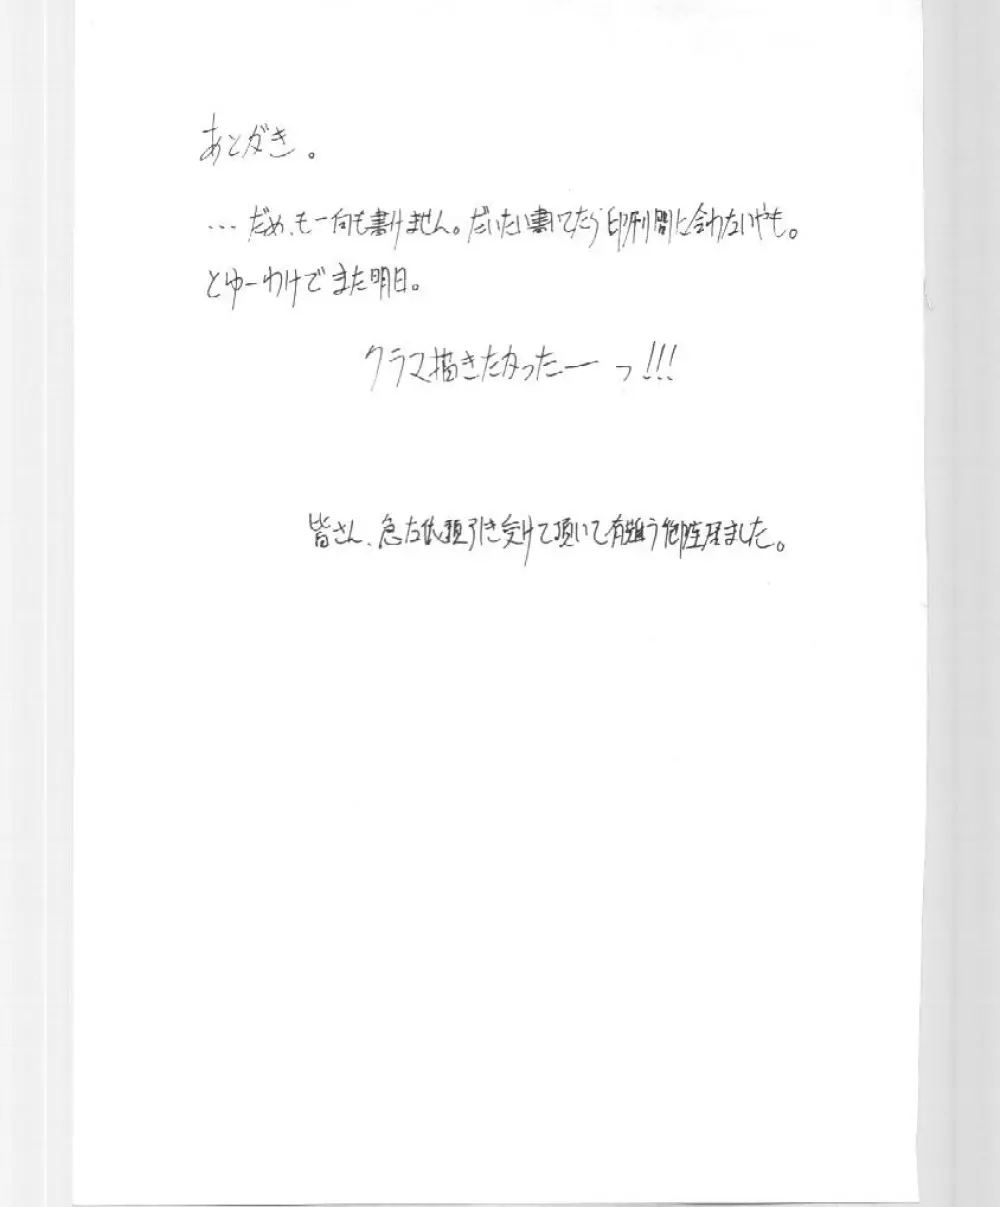 あとがき。
…だめ、も一何も書けません。だいたい書いてたら印刷間に合わないやも。
とゆーわけでまた明日。
クラマ描きたかったーっ!!!
皆さん、急な依頼引き受けて頂いて有難う御座居ました。